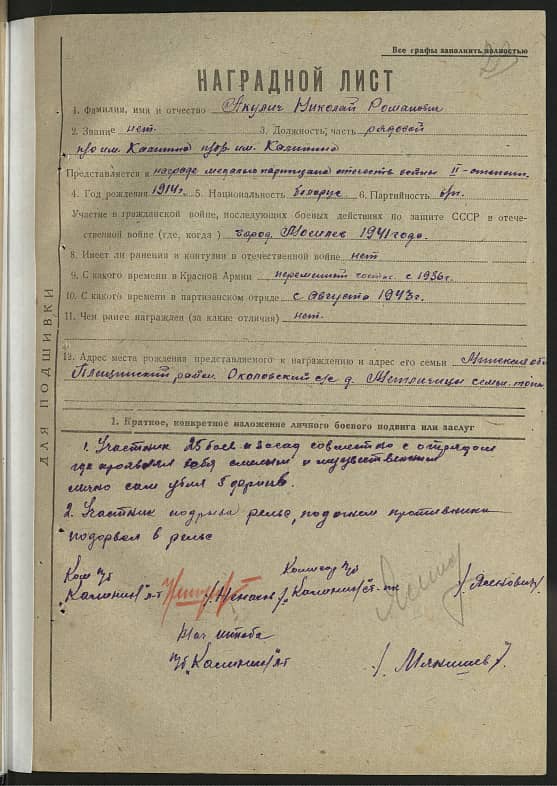 Все графы заполнить полностью
НАГРАДНОЙ ЛИСТ
1. Фамилия, имя и отчество Акулич Николай Романович
2. Звание нет. 3. Должность, часть рядовой
им. Калинина им. Калинина
Представляется к награде медалью партизана отечеств войны II-степени.
4. Год рождения 1914г. 5. Национальность белорус 6. Партийность б/п.
Участие в гражданской войне, последующих боевых действиях по защите СССР в отече-
ственной войне (где, когда) город Могилев 1941 года.
8. Имеет ли ранения и контузии в отечественной войне нет
9. С какого времени в Красной Армии с 1936г.
10. С какого времени в партизанском отряде с августа 1943г.
11. Чем ранее награжден (за какие отличия) нет.
12. Адрес места рождения представляемого к награждению и адрес его семьи Минская обл
Плещинский район. Околовский с/с д. Метличицы семья
ДЛЯ ПОДШИВКИ
1. Краткое, конкретное изложение личного боевого подвига или заслуг
1. Участник 25 боев и засад совместно с отрядом
где проявлял себя смелым и мужественным
лично сам убил 5 фрицев.
2. Участник подрыва рельс,
подорвал рельс
Ком
"Калинин" Комиссар
"Калинин" /Яненович/
Нач штаба
"Калинин" /Мякишев/.